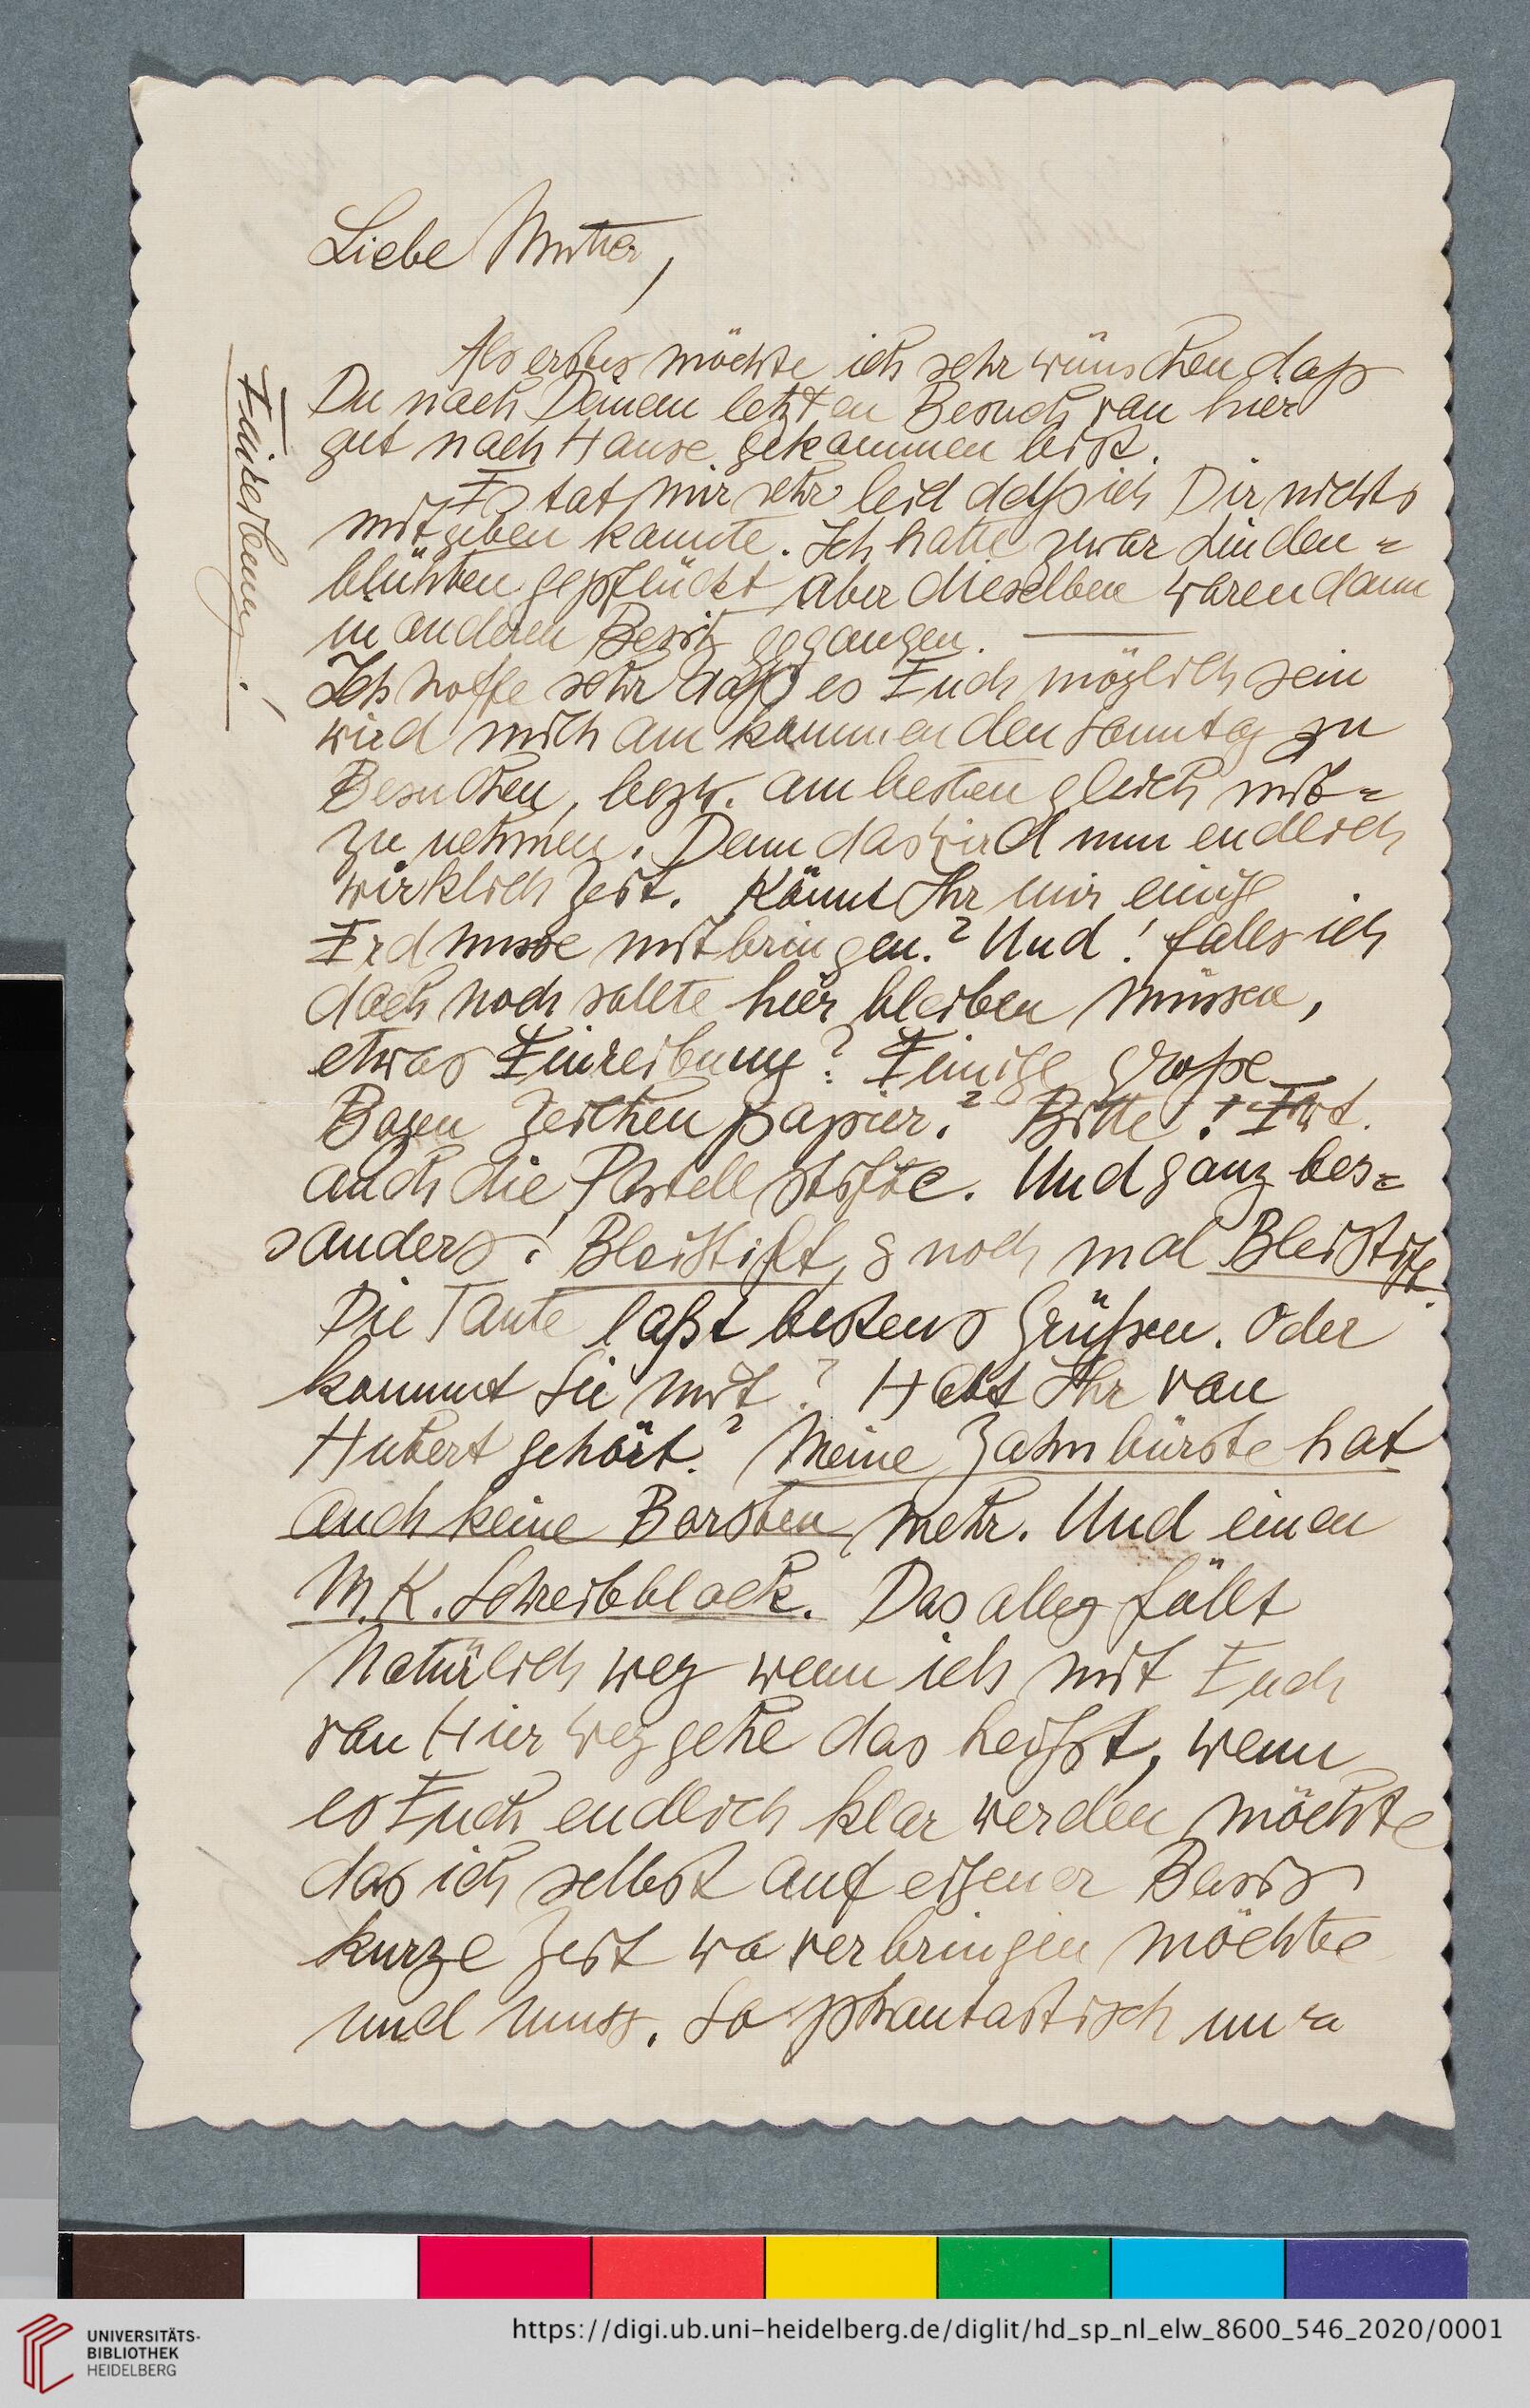 Liebe Mutter,
Als erstes möchte ich sehr wünschen daß
Du nach Deinem letzten Besuch von hier
gut nach Hause gekommen bist.
Es tat mir sehr leid daß ich Dir nichts
mitgeben konnte. Ich hatte zwar Linden=
blühten gepflückt aber dieselben waren dann
in anderen Besitz gegangen.
Ich hoffe sehr daß es Euch möglich sein
wird mich am kommenden Sonntag zu
Besuchen, bezw. am besten gleich mit=
zu nehmen. Denn das wird nun endlich
wirklich Zeit. Könnt Ihr mir einige
Erdnusse mitbringen? Und! falls ich
doch noch sollte hier bleiben müssen,
etwas Einreibung? Einige große
Bogen Zeichenpapier? Bitte!
auch die Pastellstifte. Und ganz bes=
sonders! Bleistift, & noch mal Bleistift.
Die Tante laßt bestens Grüßen. Oder
kommt Sie mit? Habt Ihr von
Hubert gehört? Meine Zahnbürste hat
auch keine Borsten mehr. Und einen
M.K. Schreibblock. Das alles fällt
Natürlich weg wenn ich mit Euch
von Hier weggehe das heißt, wenn
es Euch endlich klar werden möchte
das ich selbst auf eigener Basis
kurze Zeit wo verbringen möchte
und muss. So phantastisch
Einreibung!
UNIVERSITÄTS-
BIBLIOTHEK
HEIDELBERG
https://digi.ub.uni-heidelberg.de/diglit/hd_sp_nl_elw_8600_546_2020/0001